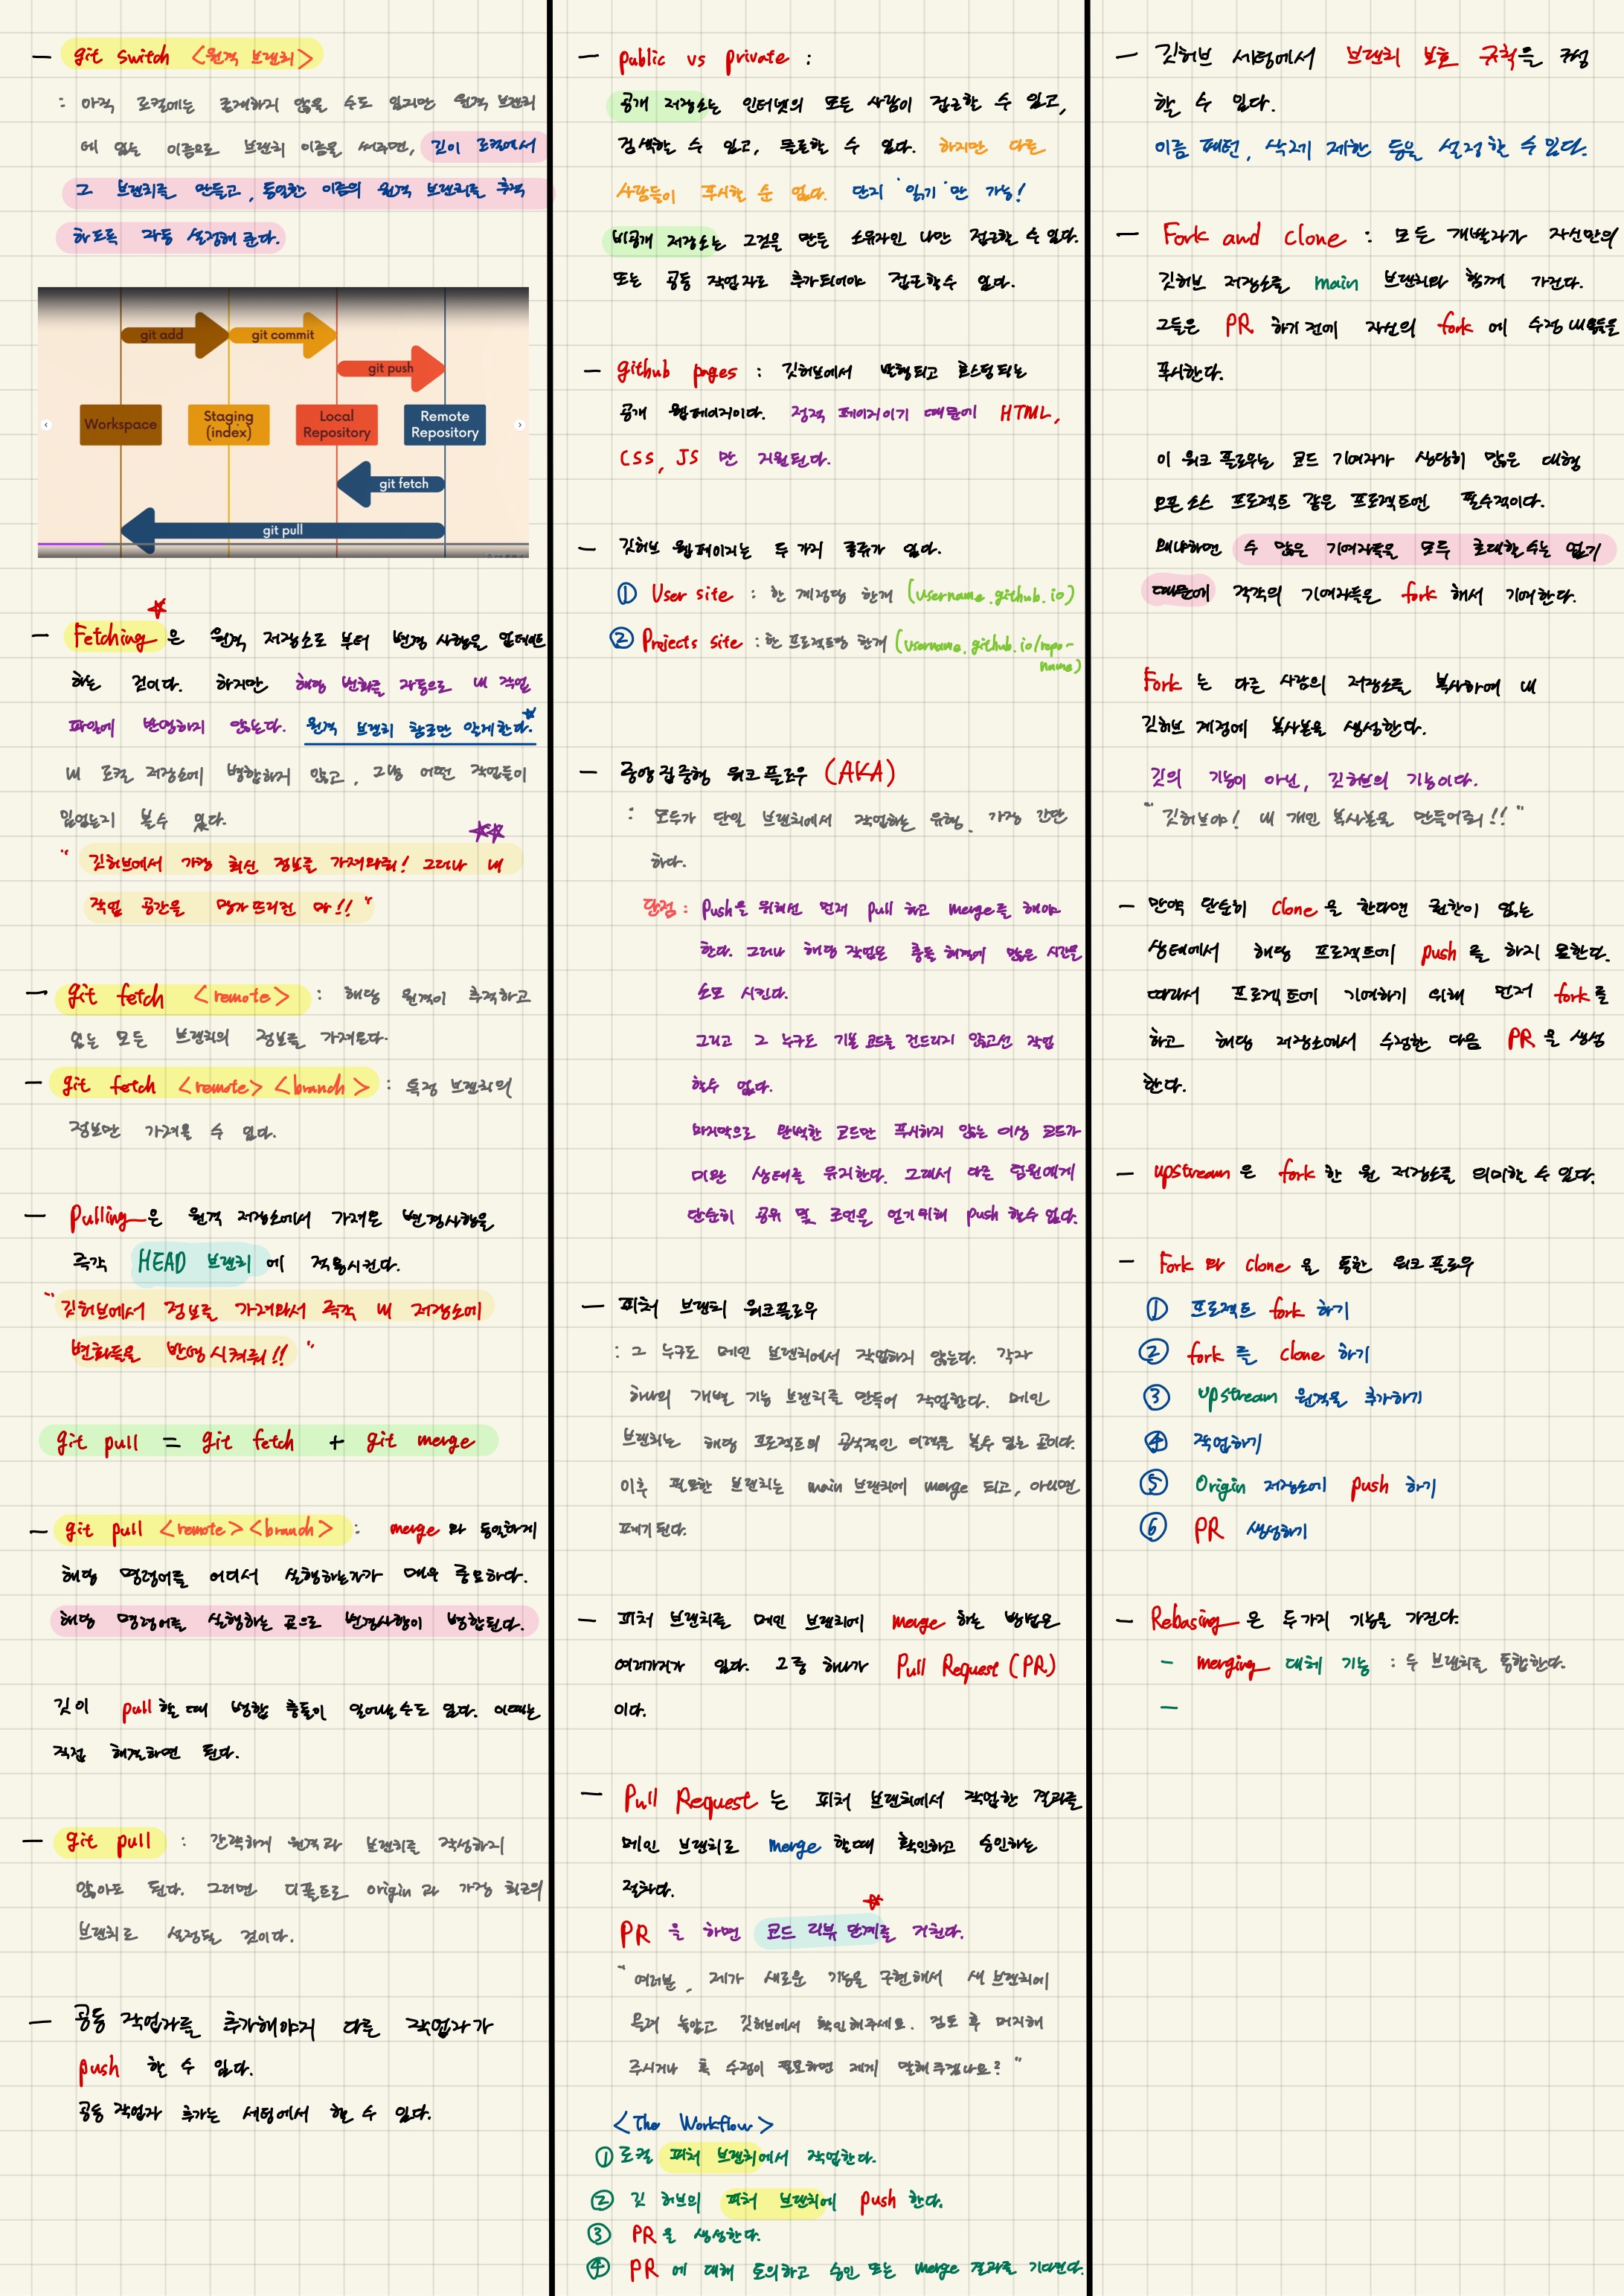 — git switch <원격 브랜치>
: 아직 로컬에는 존재하지 않을 수도 있지만 원격 브랜치
에 있는 이름으로 브랜치 이름을 써주면, 깃이 로컬에서
그 브랜치를 만들고, 동일한 이름의 원격 브랜치를 추적
하도록 자동 설정해 준다.
git add
git commit
git push
Workspace
Staging
(index)
Local
Repository
Remote
Repository
git fetch
git pull
— Fetching은 원격 저장소로 부터 변경 사항을 업데이트
하는 것이다. 하지만 해당 변화를 자동으로 내 작업
파일에 반영하지 않는다. 원격 브랜치 참조만 알게한다.
내 로컬 저장소에 병합하지 않고, 그냥 어떤 작업들이
있었는지 볼수 있다.
" 깃허브에서 가장 최신 정보를 가져와줘! 그러나 내
작업 공간을 망가 뜨리진 마!! "
— git fetch <remote> : 해당 원격이 추적하고
있는 모든 브랜치의 정보를 가져온다.
— git fetch <remote> <branch> : 특정 브랜치의
정보만 가져올 수 있다.
— Pulling은 원격 저장소에서 가져온 변경사항을
즉각 HEAD 브랜치에 적용시킨다.
" 깃허브에서 정보를 가져와서 즉각 내 저장소에
변화들을 반영 시켜줘!! "
git pull = git fetch + git merge
— git pull <remote><branch> : merge 와 동일하게
해당 명령어를 어디서 실행하는지가 매우 중요하다.
해당 명령어를 실행하는 곳으로 변경사항이 병합된다.
깃이 pull할 때 병합 충돌이 일어날수도 있다. 이때는
직접 해결하면 된다.
— git pull : 간략하게 원격과 브랜치를 작성하지
않아도 된다. 그러면 디폴트로 origin 과 가장 최근의
브랜치로 설정될 것이다.
— 공동 작업자를 추가해야지 다른 작업자가
push 할 수 있다.
공동 작업자 추가는 세팅에서 할 수 있다.
— public vs private :
공개 저장소는 인터넷의 모든 사람이 접근할 수 있고,
검색할 수 있고, 클론할 수 있다. 하지만 다른
사람들이 푸시할 순 없다. 단지 '읽기'만 가능!
비공개 저장소는 그것을 만든 소유자인 나만 접근할 수 있다.
또는 공동 작업자로 추가되어야 접근할수 있다.
— github pages : 깃허브에서 발행되고 호스팅 되는
공개 웹페이지이다. 정적 페이지이기 때문에 HTML,
CSS, JS 만 지원된다.
— 깃허브 웹페이지는 두 가지 종류가 있다.
① User site : 한 계정당 한개 (username.github.io)
② Projects site : 한 프로젝트당 한개 (username.github.io/repo-
name)
— 중앙 집중형 워크 플로우 (AKA)
: 모두가 단일 브랜치에서 작업하는 유형. 가장 간단
하다.
단점 : Push을 위해선 먼저 pull 하고 merge를 해야
한다. 그러나 해당 작업은 충돌 해결에 많은 시간을
소모 시킨다.
그리고 그 누구도 기본 코드를 건드리지 않고선 작업
할수 없다.
마지막으로 완벽한 코드만 푸시하지 않는 이상 코드가
미완 상태를 유지한다. 그래서 다른 팀원에게
단순히 공유 및 조언을 얻기위해 push 할수 없다.
— 피처 브랜치 워크플로우
: 그 누구도 메인 브랜치에서 작업하지 않는다. 각자
하나의 개별 기능 브랜치를 만들어 작업한다. 메인
브랜치는 해당 프로젝트의 공식적인 이력을 볼수 있는 곳이다.
이후 필요한 브랜치는 main 브랜치에 merge 되고, 아니면
폐기 된다.
— 피처 브랜치를 메인 브랜치에 merge 하는 방법은
여러가지가 있다. 그중 하나가 Pull Request (PR)
이다.
— Pull Request 는 피처 브랜치에서 작업한 결과를
메인 브랜치로 merge 할때 확인하고 승인하는
절차다.
PR 을 하면 코드 리뷰 단계를 거친다.
" 여러분, 제가 새로운 기능을 구현해서 새 브랜치에
올려 놓았고 깃허브에서 확인해주세요. 검토 후 머지해
주시거나 혹 수정이 필요하면 제게 말해주겠나요? "
<The Workflow>
① 로컬 피처 브랜치에서 작업한다.
② 깃 허브의 피처 브랜치에 push 한다.
③ PR을 생성한다.
④ PR 에 대해 토의하고 승인 또는 merge 결과를 기다린다.
— 깃허브 세팅에서 브랜치 보호 규칙을 구성
할 수 있다.
이름 패턴, 삭제 제한 등을 설정할 수 있다.
— Fork and clone : 모든 개발자가 자신만의
깃허브 저장소를 main 브랜치와 함께 가진다.
그들은 PR 하기 전에 자신의 fork 에 수정 내용들을
푸시한다.
이 워크 플로우는 코드 기여자가 상당히 많은 대형
오픈 소스 프로젝트 같은 프로젝트엔 필수적이다.
왜냐하면 수 많은 기여자들을 모두 초대할 수는 없기
때문에 각각의 기여자들은 fork 해서 기여한다.
Fork 는 다른 사람의 저장소를 복사하여 내
깃허브 계정에 복사본을 생성한다.
깃의 기능이 아닌, 깃허브의 기능이다.
" 깃허브야! 내 개인 복사본을 만들어줘!! "
— 만약 단순히 clone 을 한다면 권한이 없는
상태에서 해당 프로젝트에 push 를 하지 못한다.
따라서 프로젝트에 기여하기 위해 먼저 fork를
하고 해당 저장소에서 수정한 다음 PR 을 생성
한다.
— upstream 은 fork 한 원 저장소를 의미할 수 있다.
— Fork 와 clone 을 통한 워크 플로우
① 프로젝트 fork 하기
② fork 를 clone 하기
③ upstream 원격을 추가하기
④ 작업하기
⑤ Origin 저장소에 push 하기
⑥ PR 생성하기
— Rebasing 은 두가지 기능을 가진다.
— merging 대체 기능 : 두 브랜치를 통합한다.
—